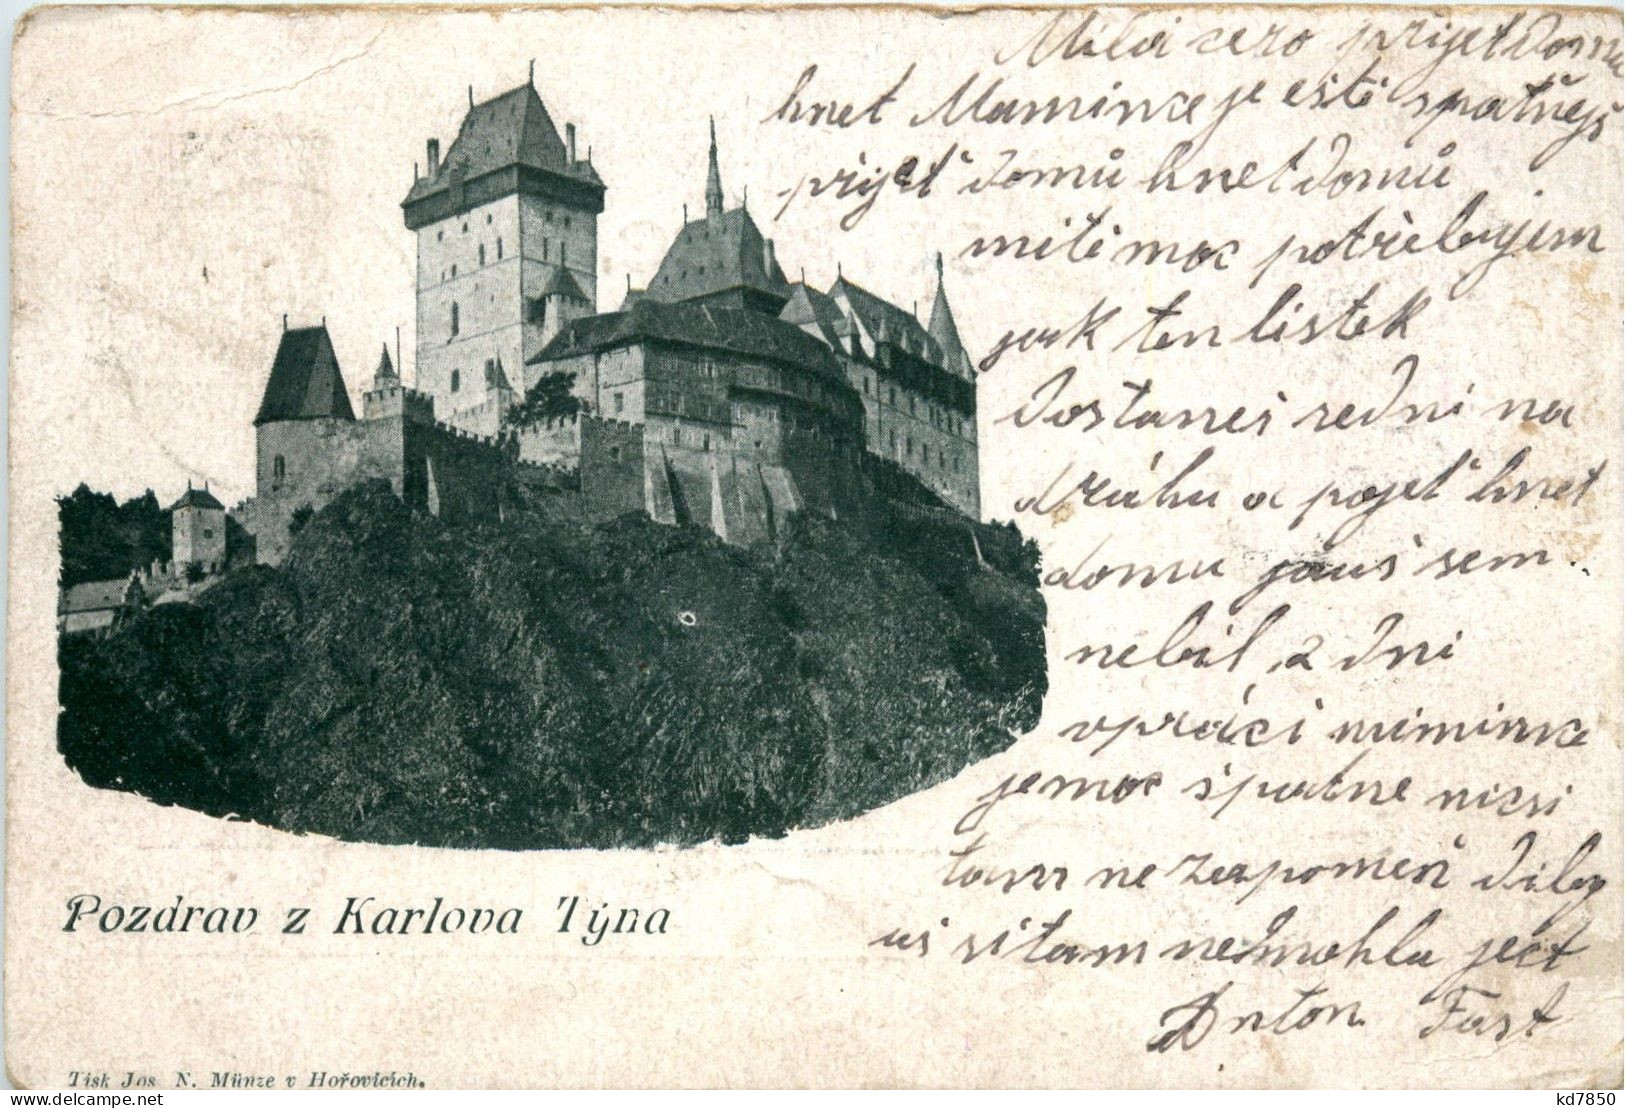 Milá cero přijet Domu
hnet Mamince je ešti špatněji
přijet domů hnet Domů
miti moc potřebujem
jak ten listek
Dostaneš sedni na
dráhu a pojet hnet
domu jaus sem
nebil 2 Dni
vpráci mimince
jemoc špatne nicsi
tam ne zapomeň Dilej
uš sitam nemohla ject
Anton Fast
Pozdrav z Karlova Týna
Tisk Jos. N. Münze v Hořovicích.
kd7850